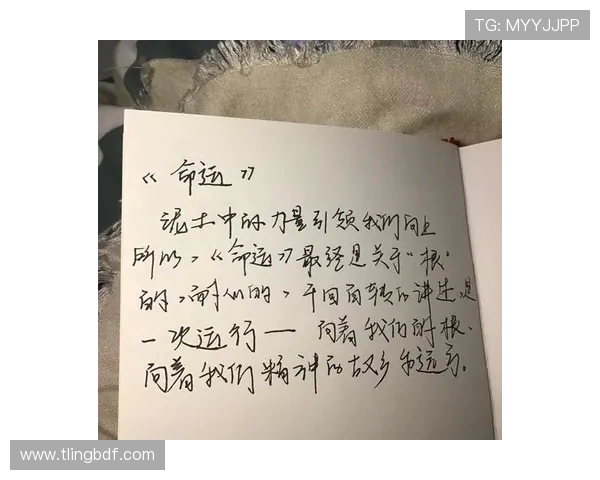 TG: MYYJJPP
《命运》
泥土中的力量引领我们向上
所以,《命运》最终是关于“根”
的,耐人的,千回百转的讲述,是
一次运行—向着我们的根.
向着我们精神的故乡和远方。
www.tlingbdf.com